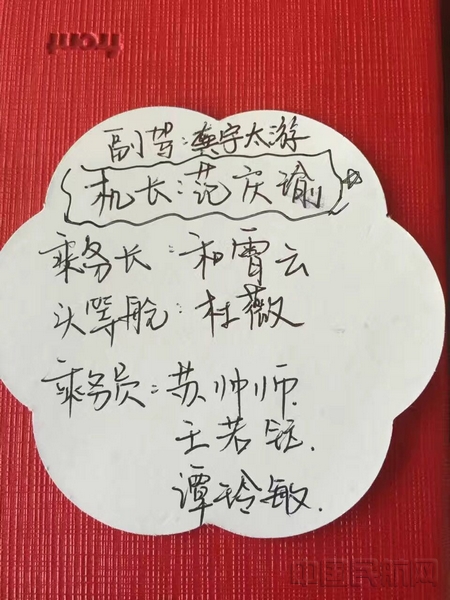 front
副驾:龚宇太游
机长:范庆瑜
乘务长:和霄云
头等舱:杜薇
乘务员:苏帅师.
王若钰.
谭玲敏.
中国民航网